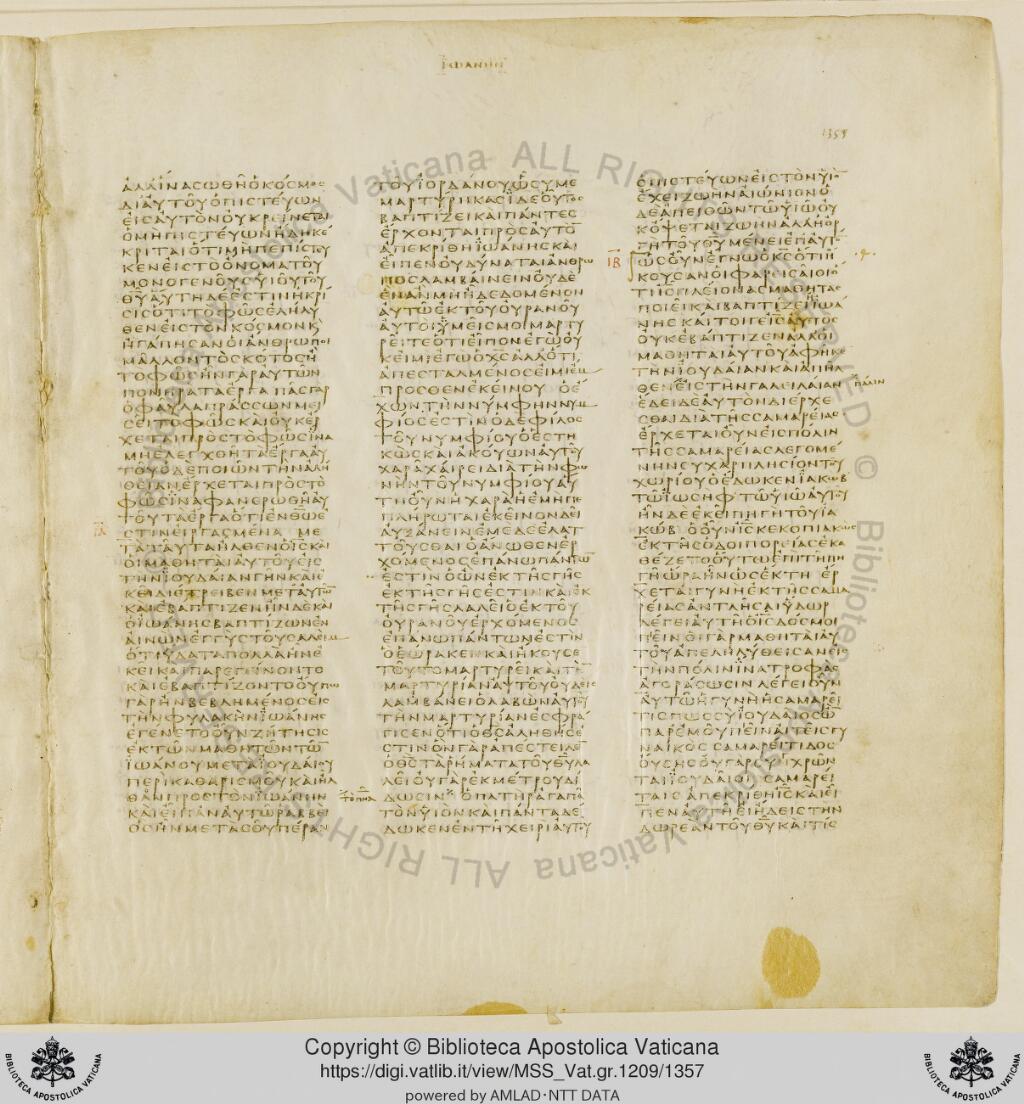 ΙΩΑΝΗΝ
1357
ΑΛΛΙΝΑϹΩΘΗΟΚΟϹΜΟϹ
ΔΙΑΥΤΟΥΟΠΙϹΤΕΥΩΝ
ΕΙϹΑΥΤΟΝΟΥΚΡΕΙΝΕΤΑΙ
ΟΜΗΠΙϹΤΕΥΩΝΗΔΗΚΕ
ΚΡΙΤΑΙΟΤΙΜΗΠΕΠΙϹΤΕΥ
ΚΕΝΕΙϹΤΟΟΝΟΜΑΤΟΥ
ΜΟΝΟΓΕΝΟΥϹΥΙΟΥΤΟΥ
ΘΥΑΥΤΗΔΕΕϹΤΙΝΗΚΡΙ
ϹΙϹΟΤΙΤΟΦΩϹΕΛΗΛΥ
ΘΕΝΕΙϹΤΟΝΚΟϹΜΟΝΚΑΙ
ΗΓΑΠΗϹΑΝΟΙΑΝΘΡΩΠΟΙ
ΜΑΛΛΟΝΤΟϹΚΟΤΟϹΗ
ΤΟΦΩϹΗΝΓΑΡΑΥΤΩΝ
ΠΟΝΗΡΑΤΑΕΡΓΑΠΑϹΓΑΡ
ΟΦΑΥΛΑΠΡΑϹϹΩΝΜΕΙ
ϹΕΙΤΟΦΩϹΚΑΙΟΥΚΕΡ
ΧΕΤΑΙΠΡΟϹΤΟΦΩϹΙΝΑ
ΜΗΕΛΕΓΧΘΗΤΑΕΡΓΑΑΥ
ΤΟΥΟΔΕΠΟΙΩΝΤΗΝΑΛΗ
ΘΕΙΑΝΕΡΧΕΤΑΙΠΡΟϹΤΟ
ΦΩϹΙΝΑΦΑΝΕΡΩΘΗΑΥ
ΤΟΥΤΑΕΡΓΑΟΤΙΕΝΘΩΕ
ΙΑ ϹΤΙΝΕΙΡΓΑϹΜΕΝΑ ΜΕ
ΤΑΤΑΥΤΑΗΛΘΕΝΟΙϹΚΑΙ
ΟΙΜΑΘΗΤΑΙΑΥΤΟΥΕΙϹ
ΤΗΝΙΟΥΔΑΙΑΝΓΗΝΚΑΙΕ
ΚΕΙΔΙΕΤΡΕΙΒΕΝΜΕΤΑΥΤΩ̅
ΚΑΙΕΒΑΠΤΙΖΕΝΗΝΔΕΚΑΙ
ΟΙΩΑΝΗϹΒΑΠΤΙΖΩΝΕΝ
ΑΙΝΩΝΕΓΓΥϹΤΟΥϹΑΛΕΙΜ
ΟΤΙΥΔΑΤΑΠΟΛΛΑΗΝΕ
ΚΕΙΚΑΙΠΑΡΕΓΕΙΝΟΝΤΟ
ΚΑΙΕΒΑΠΤΙΖΟΝΤΟΟΥΠΩ
ΓΑΡΗΝΒΕΒΛΗΜΕΝΟϹΕΙϹ
ΤΗΝΦΥΛΑΚΗΝΙΩΑΝΗϹ
ΕΓΕΝΕΤΟΟΥΝΖΗΤΗϹΙϹ
ΕΚΤΩΝΜΑΘΗΤΩΝΤΩ̅
ΙΩΑΝΟΥΜΕΤΑΙΟΥΔΑΙΟΥ
ΠΕΡΙΚΑΘΑΡΙϹΜΟΥΚΑΙΗΛ
ΘΑΝΠΡΟϹΤΟΝΙΩΑΝΗΝ
ΚΑΙΕΙΠΑΝΑΥΤΩΡΑΒΒΕΙ
ΟϹΗΝΜΕΤΑϹΟΥΠΕΡΑΝ
ΤΟΥΙΟΡΔΑΝΟΥΩϹΥΜΕ
ΜΑΡΤΥΡΗΚΑϹΙΔΕΟΥΤΟϹ
ΒΑΠΤΙΖΕΙΚΑΙΠΑΝΤΕϹ
ΕΡΧΟΝΤΑΙΠΡΟϹΑΥΤΟ̅
ΑΠΕΚΡΙΘΗΙΩΑΝΗϹΚΑΙ
ΕΙΠΕΝΟΥΔΥΝΑΤΑΙΑΝΘΡΩ
ΠΟϹΛΑΜΒΑΝΕΙΝΟΥΔΕ
ΕΝΑΝΜΗΗΔΕΔΟΜΕΝΟΝ
ΑΥΤΩΕΚΤΟΥΟΥΡΑΝΟΥ
ΑΥΤΟΙΥΜΕΙϹΜΟΙΜΑΡΤΥ
ΡΕΙΤΕΟΤΙΕΙΠΟΝΕΓΩΟΥ
ΚΕΙΜΙΕΓΩΟΧϹΑΛΛΟΤΙ
ΑΠΕϹΤΑΛΜΕΝΟϹΕΙΜΙΕΜ
ΠΡΟϹΘΕΝΕΚΕΙΝΟΥ ΟΕ
ΧΩΝΤΗΝΝΥΜΦΗΝΝΥΜ
ΦΙΟϹΕϹΤΙΝΟΔΕΦΙΛΟϹ
ΤΟΥΝΥΜΦΙΟΥΟΕϹΤΗ
ΚΩϹΚΑΙΑΚΟΥΩΝΑΥΤΟΥ
ΧΑΡΑΧΑΙΡΕΙΔΙΑΤΗΝΦΩ
ΝΗΝΤΟΥΝΥΜΦΙΟΥΑΥ
ΤΗΟΥΝΗΧΑΡΑΗΕΜΗΠΕ
ΠΛΗΡΩΤΑΙΕΚΕΙΝΟΝΔΕΙ
ΑΥΞΑΝΕΙΝΕΜΕΔΕΕΛΑΤ
ΤΟΥϹΘΑΙΟΑΝΩΘΕΝΕΡ
ΧΟΜΕΝΟϹΕΠΑΝΩΠΑΝΤΩ
ΕϹΤΙΝΟΩΝΕΚΤΗϹΓΗϹ
ΕΚΤΗϹΓΗϹΕϹΤΙΝΚΑΙΕΚ
ΤΗϹΓΗϹΛΑΛΕΙΟΕΚΤΟΥ
ΟΥΡΑΝΟΥΕΡΧΟΜΕΝΟϹ
ΕΠΑΝΩΠΑΝΤΩΝΕϹΤΙΝ
ΟΕΩΡΑΚΕΝΚΑΙΗΚΟΥϹΕ
ΤΟΥΤΟΜΑΡΤΥΡΕΙΚΑΙΤΗ̅
ΜΑΡΤΥΡΙΑΝΑΥΤΟΥΟΥΔΕΙϹ
ΛΑΜΒΑΝΕΙΟΛΑΒΩΝΑΥΤΟΥ
ΤΗΝΜΑΡΤΥΡΙΑΝΕϹΦΡΑ
ΓΙϹΕΝΟΤΙΟΘϹΑΛΗΘΗϹΕ
ϹΤΙΝΟΝΓΑΡΑΠΕϹΤΕΙΛΕ̅
ΟΘϹΤΑΡΗΜΑΤΑΤΟΥΘΥΛΑ
ΛΕΙΟΥΓΑΡΕΚΜΕΤΡΟΥΔΙ
ΤΟΠΝΑ ΔΩϹΙΝ ΟΠΑΤΗΡΑΓΑΠΑ
ΤΟΝΥΙΟΝΚΑΙΠΑΝΤΑΔΕ
ΔΩΚΕΝΕΝΤΗΧΕΙΡΙΑΥΤΟΥ
ΟΠΙϹΤΕΥΩΝΕΙϹΤΟΝΥΙΟ̅
ΕΧΕΙΖΩΗΝΑΙΩΝΙΟΝΟ
ΔΕΑΠΕΙΘΩΝΤΩΥΙΩΟΥ
ΚΟΨΕΤΑΙΖΩΗΝΑΛΛΗΟΡ
ΓΗΤΟΥΘΥΜΕΝΕΙΕΠΑΥΤΟ̅
ΙΒ ΩϹΟΥΝΕΓΝΩΟΚϹΟΤΙΗ
ΚΟΥϹΑΝΟΙΦΑΡΙϹΑΙΟΙΟ
ΤΙΙϹΠΛΕΙΟΝΑϹΜΑΘΗΤΑϹ
ΠΟΙΕΙΚΑΙΒΑΠΤΙΖΕΙΙΩΑ
ΝΗϹΚΑΙΤΟΙΓΕΙϹΑΥΤΟϹ
ΟΥΚΕΒΑΠΤΙΖΕΝΑΛΛΟΙ
ΜΑΘΗΤΑΙΑΥΤΟΥΑΦΗΚΕ
ΤΗΝΙΟΥΔΑΙΑΝΚΑΙΑΠΗΛ
ΘΕΝΕΙϹΤΗΝΓΑΛΕΙΛΑΙΑΝ ΠΑΛΙΝ
ΕΔΕΙΔΕΑΥΤΟΝΔΙΕΡΧΕ
ϹΘΑΙΔΙΑΤΗϹϹΑΜΑΡΕΙΑϹ
ΕΡΧΕΤΑΙΟΥΝΕΙϹΠΟΛΙΝ
ΤΗϹϹΑΜΑΡΕΙΑϹΛΕΓΟΜΕ
ΝΗΝϹΥΧΑΡΠΛΗϹΙΟΝΤΟΥ
ΧΩΡΙΟΥΟΕΔΩΚΕΝΙΑΚΩΒ
ΤΩΙΩϹΗΦΤΩΥΙΩΑΥΤΟΥ
ΗΝΔΕΕΚΕΙΠΗΓΗΤΟΥΙΑ
ΚΩΒ ΟΟΥΝΙϹΚΕΚΟΠΙΑΚΩϹ
ΕΚΤΗϹΟΔΟΙΠΟΡΕΙΑϹΕΚΑ
ΘΕΖΕΤΟΟΥΤΩϹΕΠΙΤΗΠΗ
ΓΗΩΡΑΗΝΩϹΕΚΤΗ ΕΡ
ΧΕΤΑΙΓΥΝΗΕΚΤΗϹϹΑΜΑ
ΡΕΙΑϹΑΝΤΛΗϹΑΙΥΔΩΡ
ΛΕΓΕΙΑΥΤΗΟΙϹΔΟϹΜΟΙ
ΠΕΙΝΟΙΓΑΡΜΑΘΗΤΑΙΑΥ
ΤΟΥΑΠΕΛΗΛΥΘΕΙϹΑΝΕΙϹ
ΤΗΝΠΟΛΙΝΙΝΑΤΡΟΦΑϹ
ΑΓΟΡΑϹΩϹΙΝΛΕΓΕΙΟΥΝ
ΑΥΤΩΗΓΥΝΗΗϹΑΜΑΡΕΙ
ΤΙϹΠΩϹϹΥΙΟΥΔΑΙΟϹΩ̅
ΠΑΡΕΜΟΥΠΕΙΝΑΙΤΕΙϹΓΥ
ΝΑΙΚΟϹϹΑΜΑΡΕΙΤΙΔΟϹ
ΟΥϹΗϹΟΥΓΑΡϹΥΓΧΡΩΝ
ΤΑΙΙΟΥΔΑΙΟΙϹΑΜΑΡΕΙ
ΤΑΙϹΑΠΕΚΡΙΘΗΙϹΚΑΙΕΙ
ΠΕΝΑΥΤΗΕΙΗΔΕΙϹΤΗΝ
ΔΩΡΕΑΝΤΟΥΘΥΚΑΙΤΙϹ
Vaticana ALL RIGHTS RESERVED © Biblioteca Apostolica Vaticana ALL RIGHTS
Copyright © Biblioteca Apostolica Vaticana
https://digi.vatlib.it/view/MSS_Vat.gr.1209/1357
powered by AMLAD·NTT DATA
BIBLIOTECA APOSTOLICA VATICANA
BIBLIOTECA APOSTOLICA VATICANA